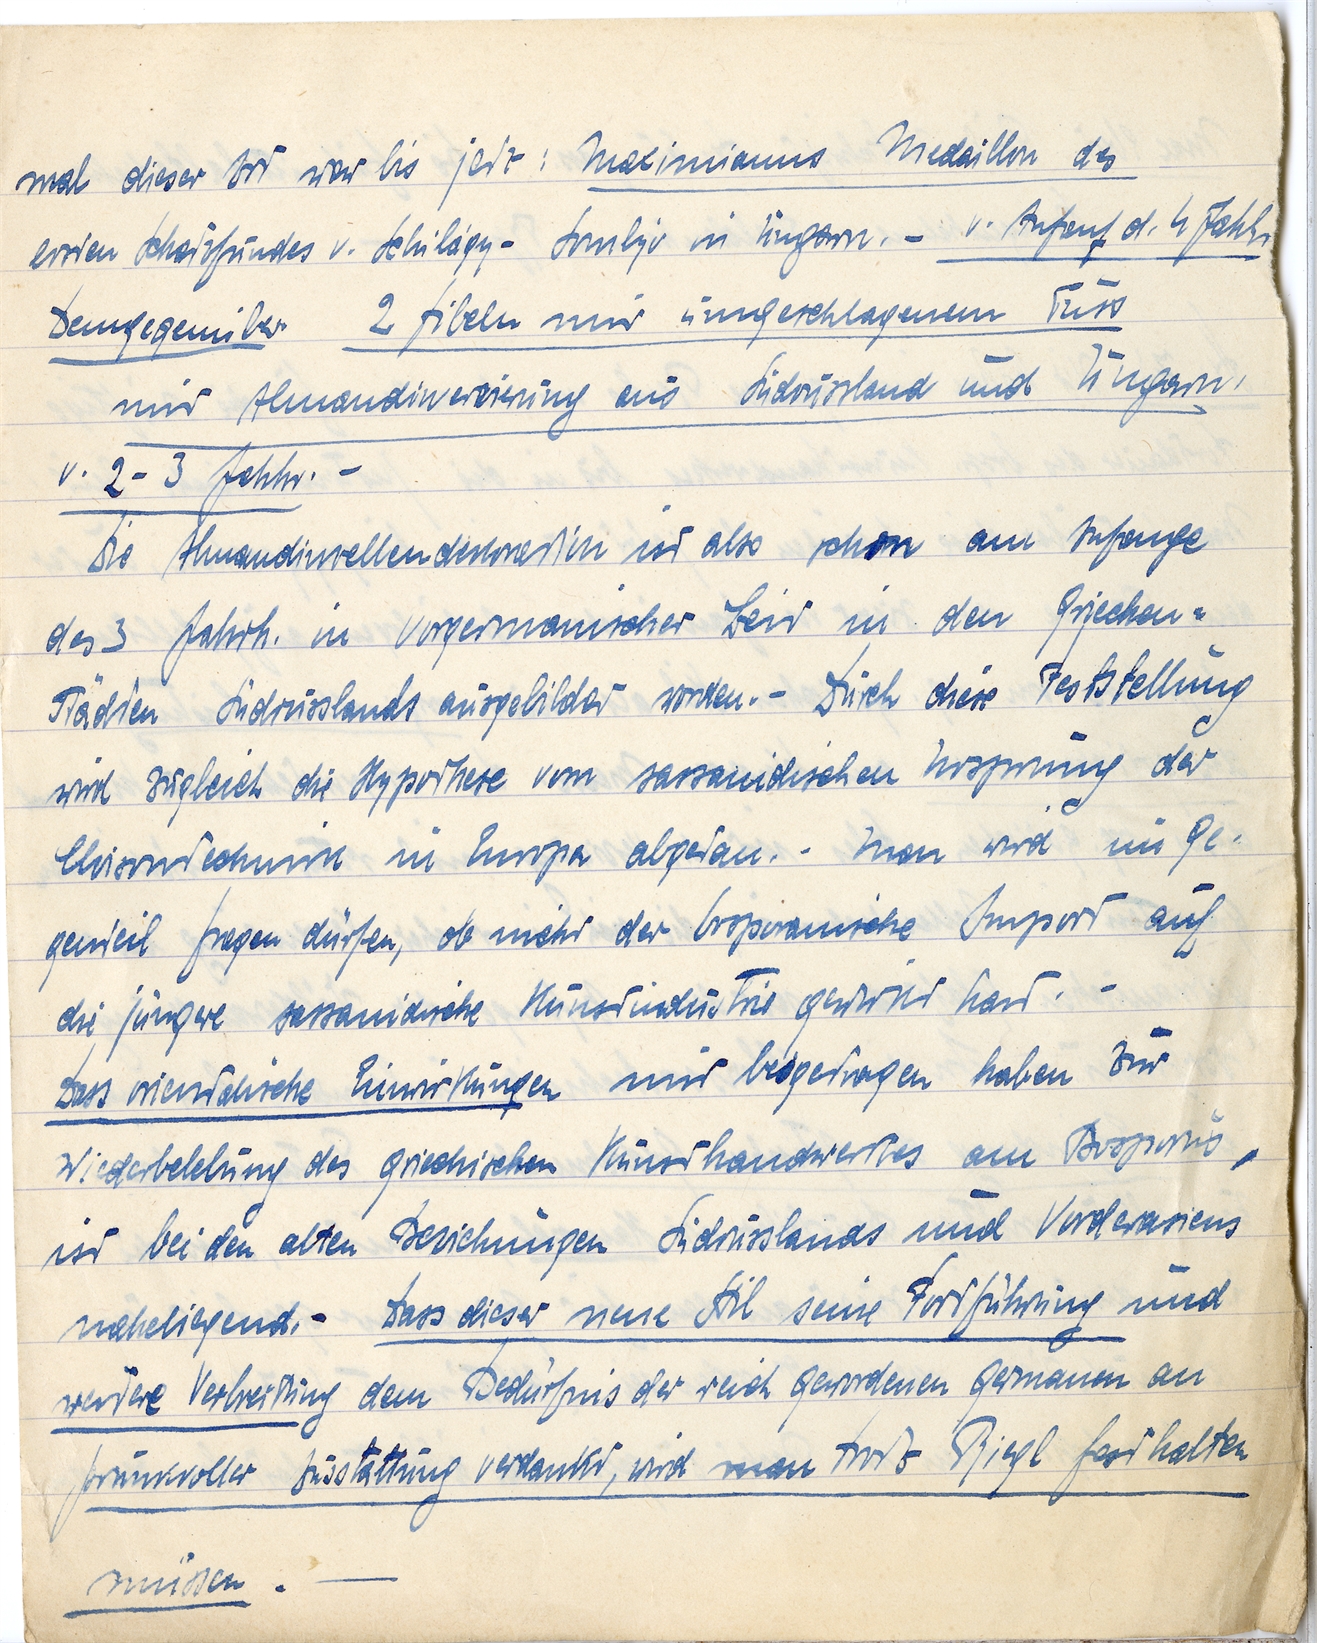 mal dieser Art war bis jetzt: Maximianus Medaillon des
ersten Schatzfundes v. Schilágy-Somlyo in Ungarn. - v. Anfang d. 4 Jahh.
Demgegenüber 2 Fibeln mit umgeschlagenem Fuss
mit Almandinverzierung aus Südrussland und Ungarn.
v. 2-3 Jahhr. -
Die Almandinzellendekoration ist also schon am Anfange
des 3 Jahrh. in vorgermanischer Zeit in den Griechen=
städten Südrusslands ausgebildet worden. - Durch diese Feststellung
wird zugleich die Hypothese vom sassanidischen Ursprung der
Cloisonntechnik in Europa abgetan. - Man wird im Ge-
genteil fragen dürfen, ob nicht der bosporanische Import auf
die jüngere sassanidische Kunstindustrie gewirkt hat. -
Dass orientalische Einwirkungen mit beigetragen haben zur
Wiederbelebung des griechischen Kunsthandwerkes am Bosporus,
ist bei den alten Beziehungen Südrusslands und Vorderasiens
naheliegend. - Dass dieser neue Stil seine Fortführung und
weitere Verbreitung dem Bedürfnis der reich gewordenen Germanen an
prunkvoller Ausstattung verdankt, wird man trotz Riegl festhalten
müssen. -